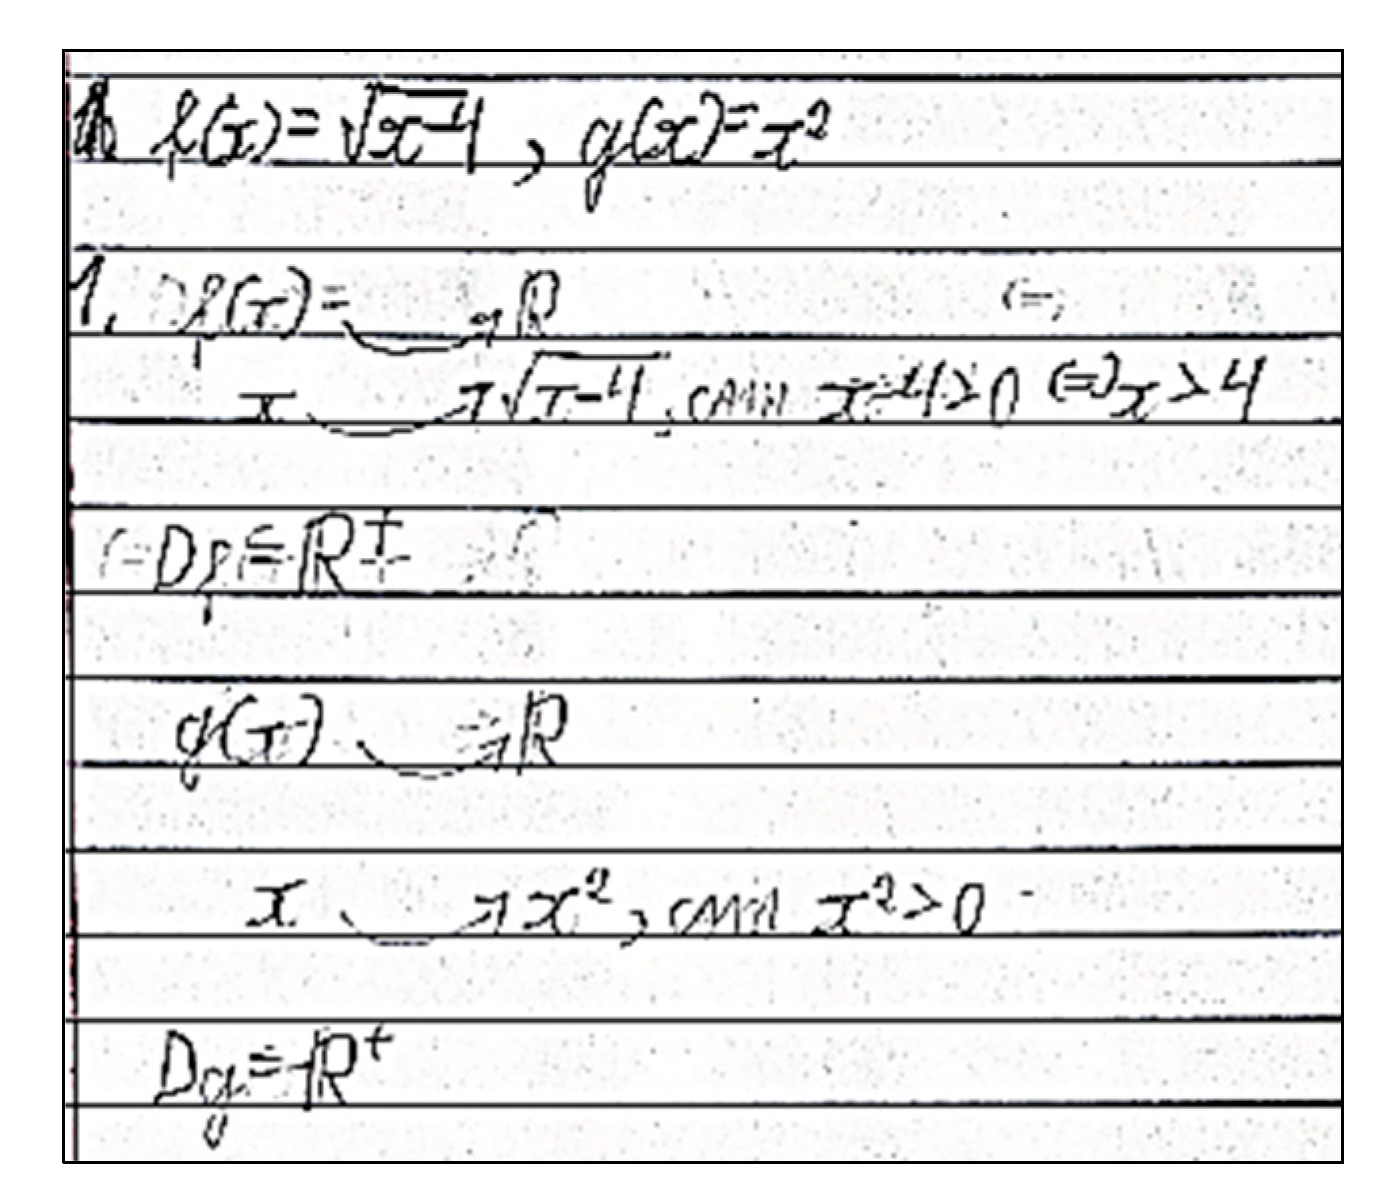 f(x) = √x-4 , g(x) = x²
1. f(x) = → ℝ (=,
x → √x-4, x-4>0 (=) x>4
Df = ℝ⁺
g(x) → ℝ
x → x², x²>0
Dg = ℝ⁺